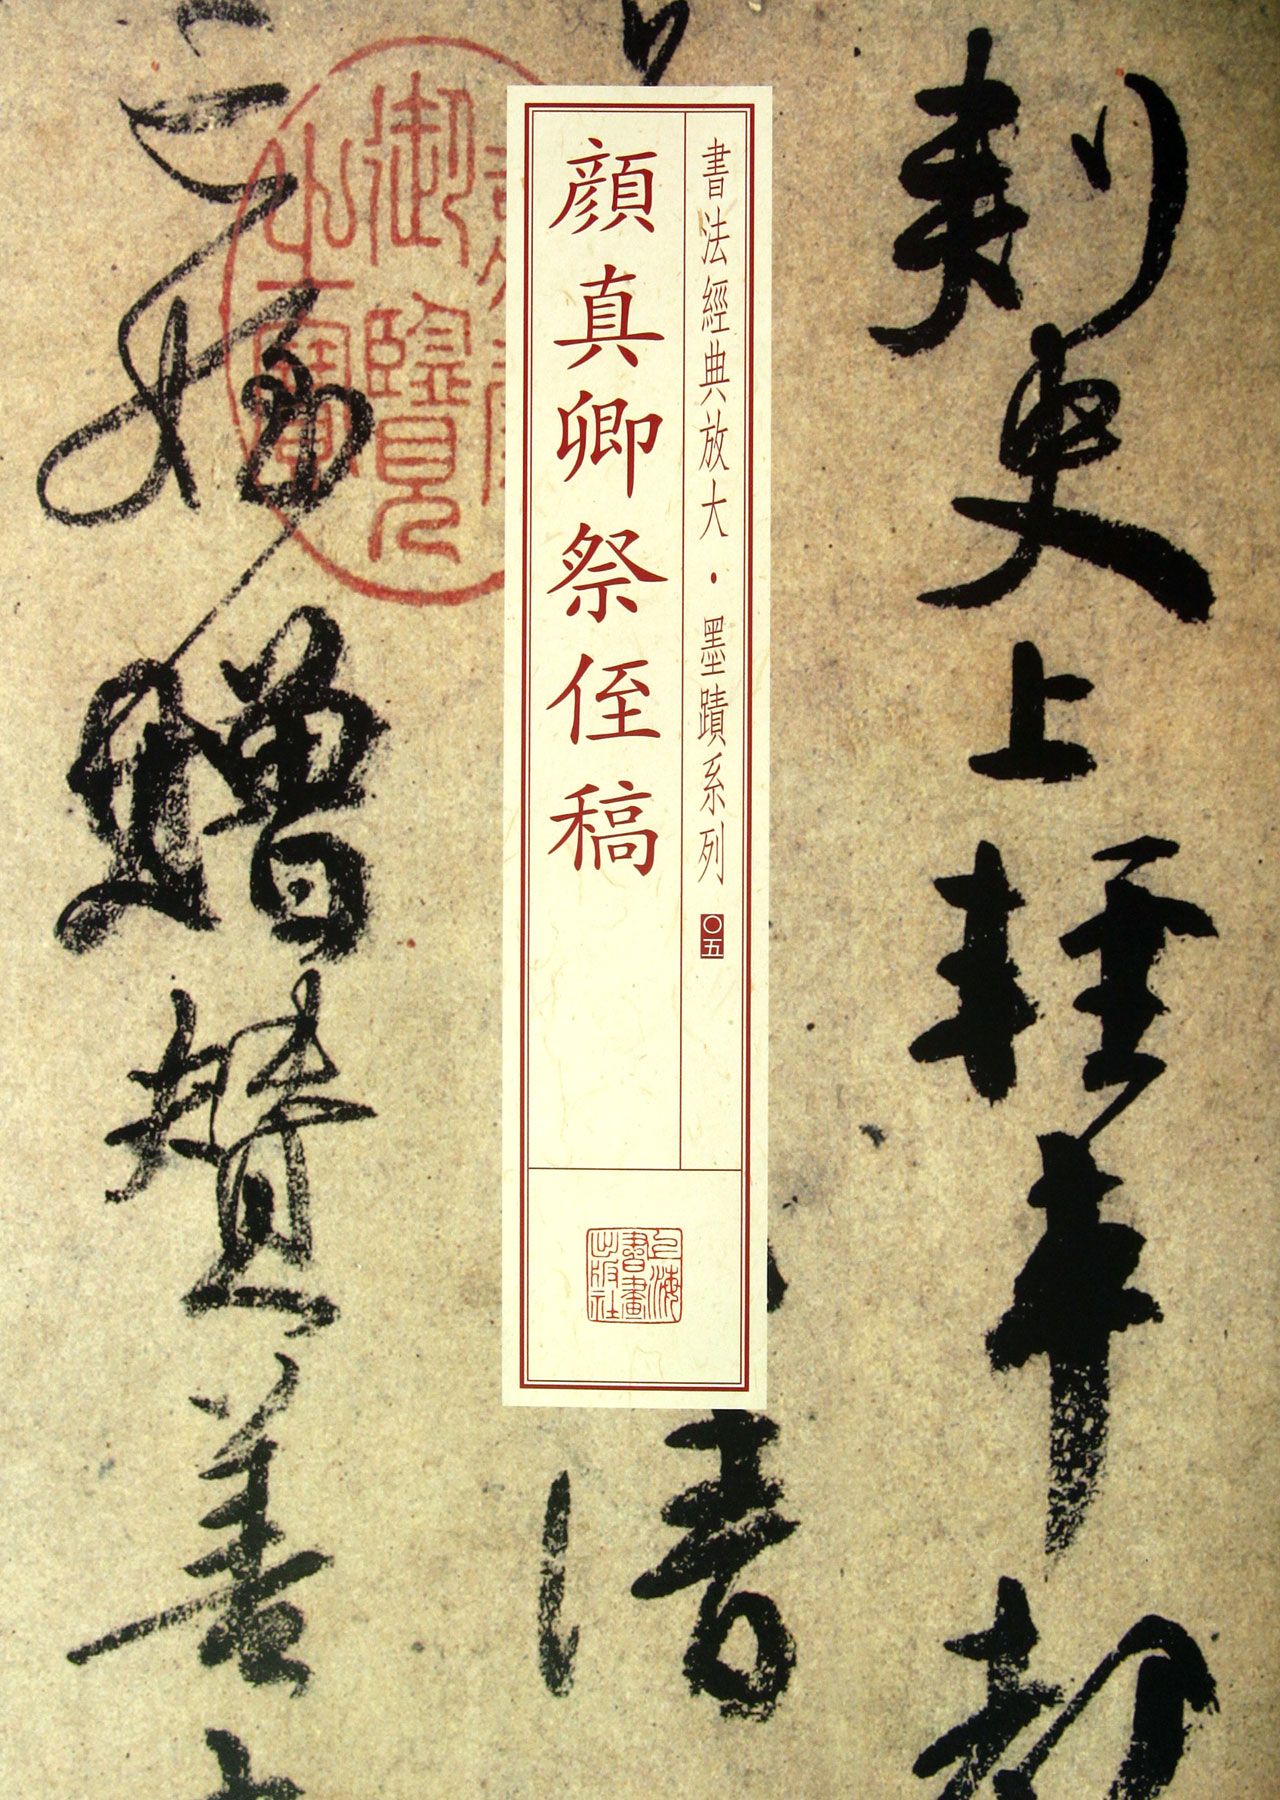 刺史上輕車都
書法經典放大·墨蹟系列 〇五
顔真卿祭侄稿
上海書畫出版社
清
御覽
之寶
亡姪贈贊善